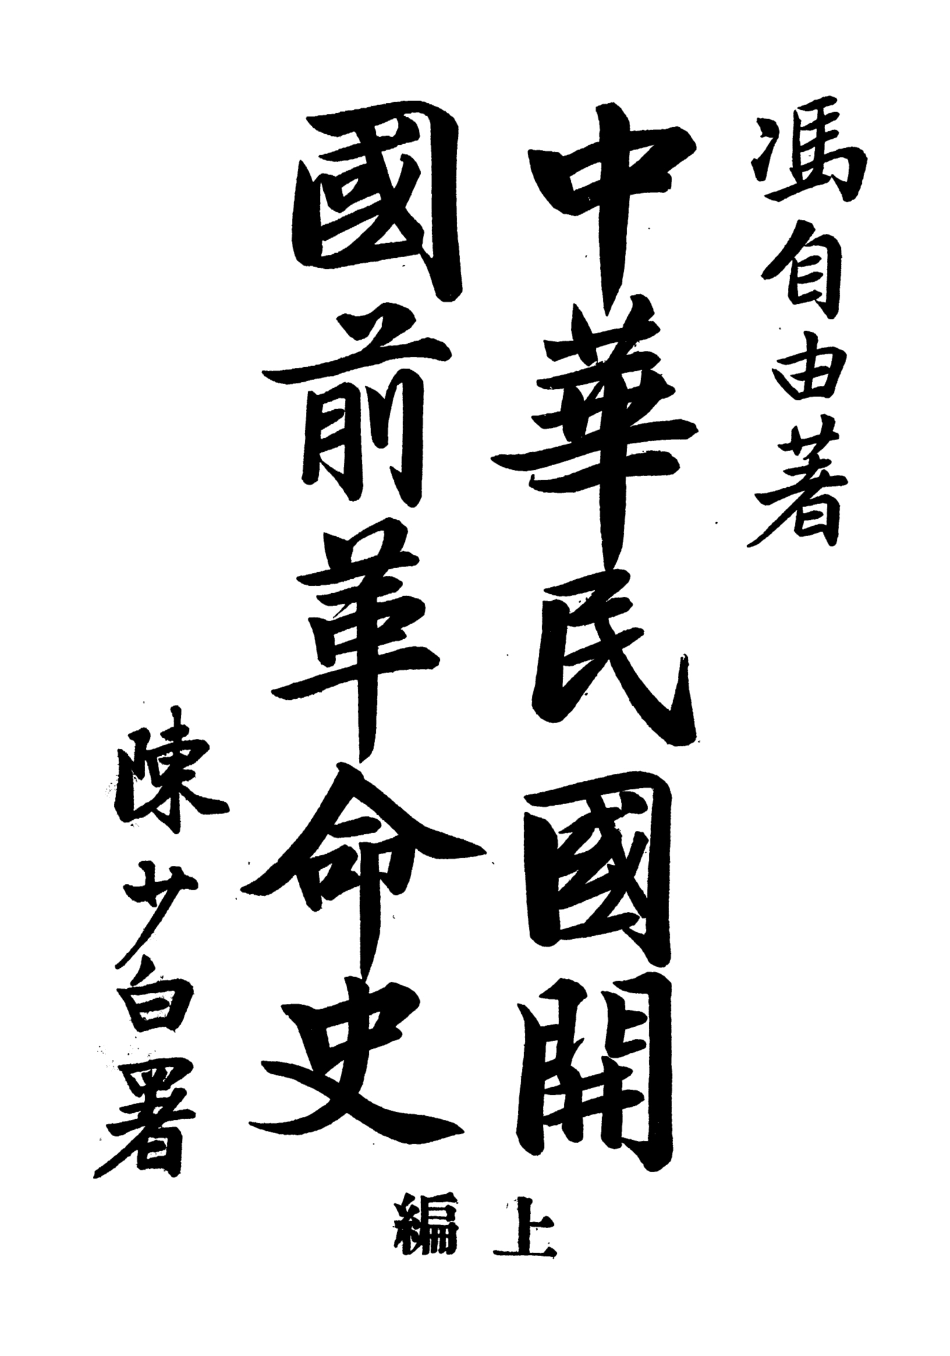 馮自由著
中華民國開
國前革命史
陳少白署
上編